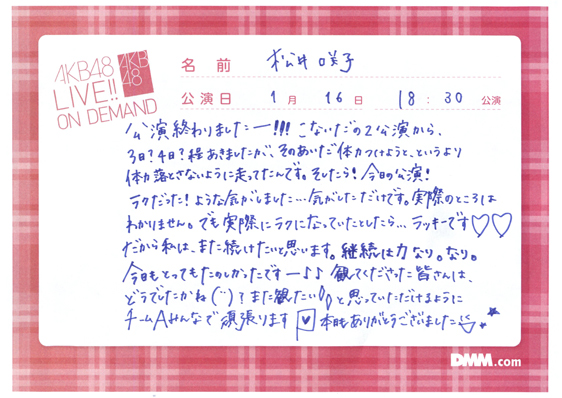 AKB48
LIVE!!
ON DEMAND
AKB
48
名 前 松井咲子
公演日 1月 16日 18:30 公演
公演終わりましたー!!! こないだの2公演から、
3日?4日?程あきましたが、そのあいだ体力つけようと、というより
体力落とさないように走ってたんです。そしたら!今日の公演!
ラクだった!ような気がしました…気がしただけです。実際のところは
わかりません。でも実際にラクになっていたとしたら…ラッキーです♡♡
だから私は、また続けたいと思います。継続は力なり。なり。
今日もとってもたのしかったですー♪♪ 観てくださった皆さんは、
どうでしたかね(¨)?また観たい!!と思っていただけるように
チームAみんなで頑張ります 本日もありがとうございました
DMM.com